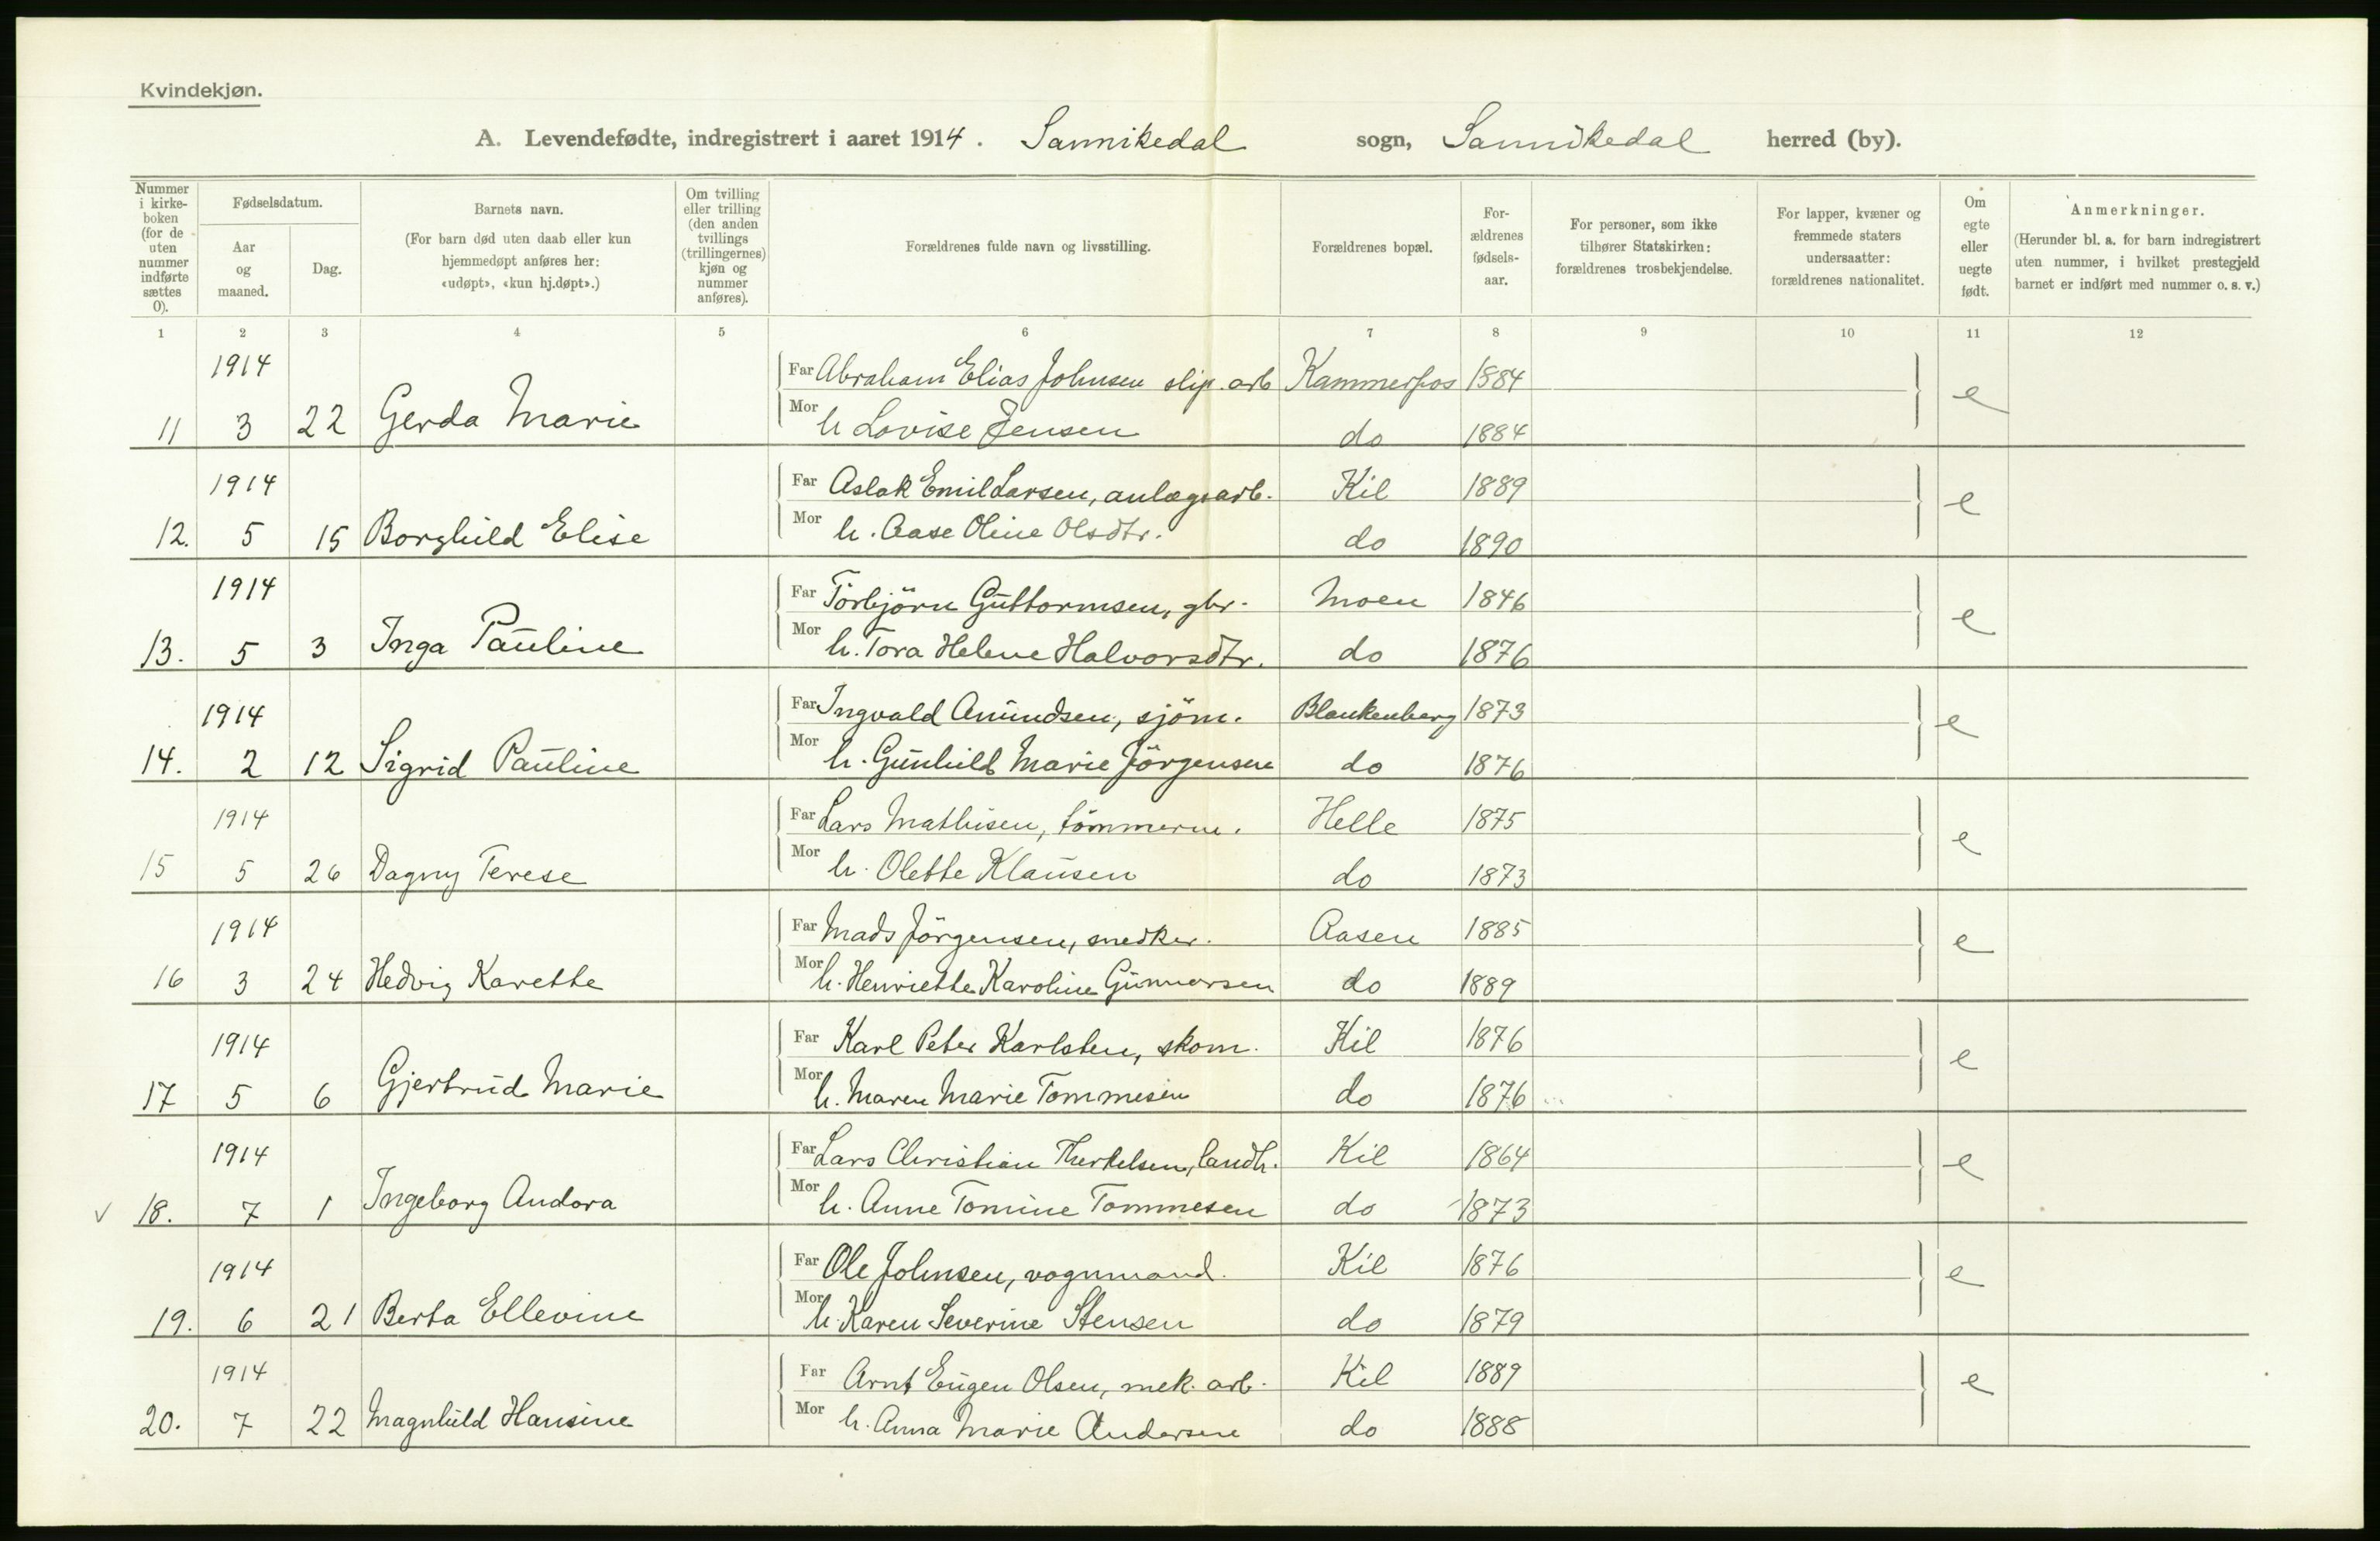 Kvindekjøn.
A. Levendefødte, indregistrert i aaret 1914. Sannikedal sogn, Sannikedal herred (by).
Nummer i kirke-boken (for de uten nummer indførte sættes 0).
Fødselsdatum.
Aar og maaned.
Dag.
Barnets navn.
(For barn død uten daab eller kun hjemmedøpt anføres her: «udøpt», «kun hj.døpt».)
Om tvilling eller trilling (den anden tvillings (trillingernes) kjøn og nummer anføres).
Forældrenes fulde navn og livsstilling.
Forældrenes bopæl.
For-ældrenes fødsels-aar.
For personer, som ikke tilhører Statskirken: forældrenes trosbekjendelse.
For lapper, kvæner og fremmede staters undersaatter: forældrenes nationalitet.
Om egte eller uegte født.
Anmerkninger.
(Herunder bl. a. for barn indregistrert uten nummer, i hvilket prestegjeld barnet er indført med nummer o. s. v.)
1 2 3 4 5 6 7 8 9 10 11 12
1914 Far Abraham Elias Johnsen slip. arb Kammerfos 1884 e
11 3 22 Gerda Marie Mor h Lovise Jensen do 1884
1914 Far Aslak Emil Larsen, anlægsarb. Kil 1889 e
12. 5 15 Borghild Elise Mor h. Aase Oline Olsdtr. do 1890
1914 Far Torbjörn Guttormsen, gbr. Moen 1846 e
13. 5 3 Inga Pauline Mor h. Tora Helene Halvorsdtr. do 1876
1914 Far Ingvald Amundsen, sjöm. Blankenberg 1873 e
14. 2 12 Sigrid Pauline Mor h. Gunhild Marie Jörgensen do 1876
1914 Far Lars Mathisen, tömmerm. Helle 1875 e
15 5 26 Dagny Terese Mor h. Olette Klausen do 1873
1914 Far Mads Jörgensen, snedker. Aasen 1885 e
16 3 24 Hedvig Karette Mor h. Henriette Karoline Gunnarsen do 1889
1914 Far Karl Peter Karlsten, skom. Kil 1876 e
17 5 6 Gjertrud Marie Mor h. Maren Marie Tommesen do 1876
1914 Far Lars Christian Therkelsen, landh. Kil 1864 e
v 18. 7 1 Ingeborg Andora Mor h. Anne Tomine Tommesen do 1873
1914 Far Ole Johnsen, vognmand. Kil 1876 e
19. 6 21 Berta Ellevine Mor h. Karen Severine Stensen do 1879
1914 Far Arnt Eugen Olsen, mek. arb. Kil 1889 e
20. 7 22 Magnhild Hansine Mor h. Anna Marie Andersen do 1888